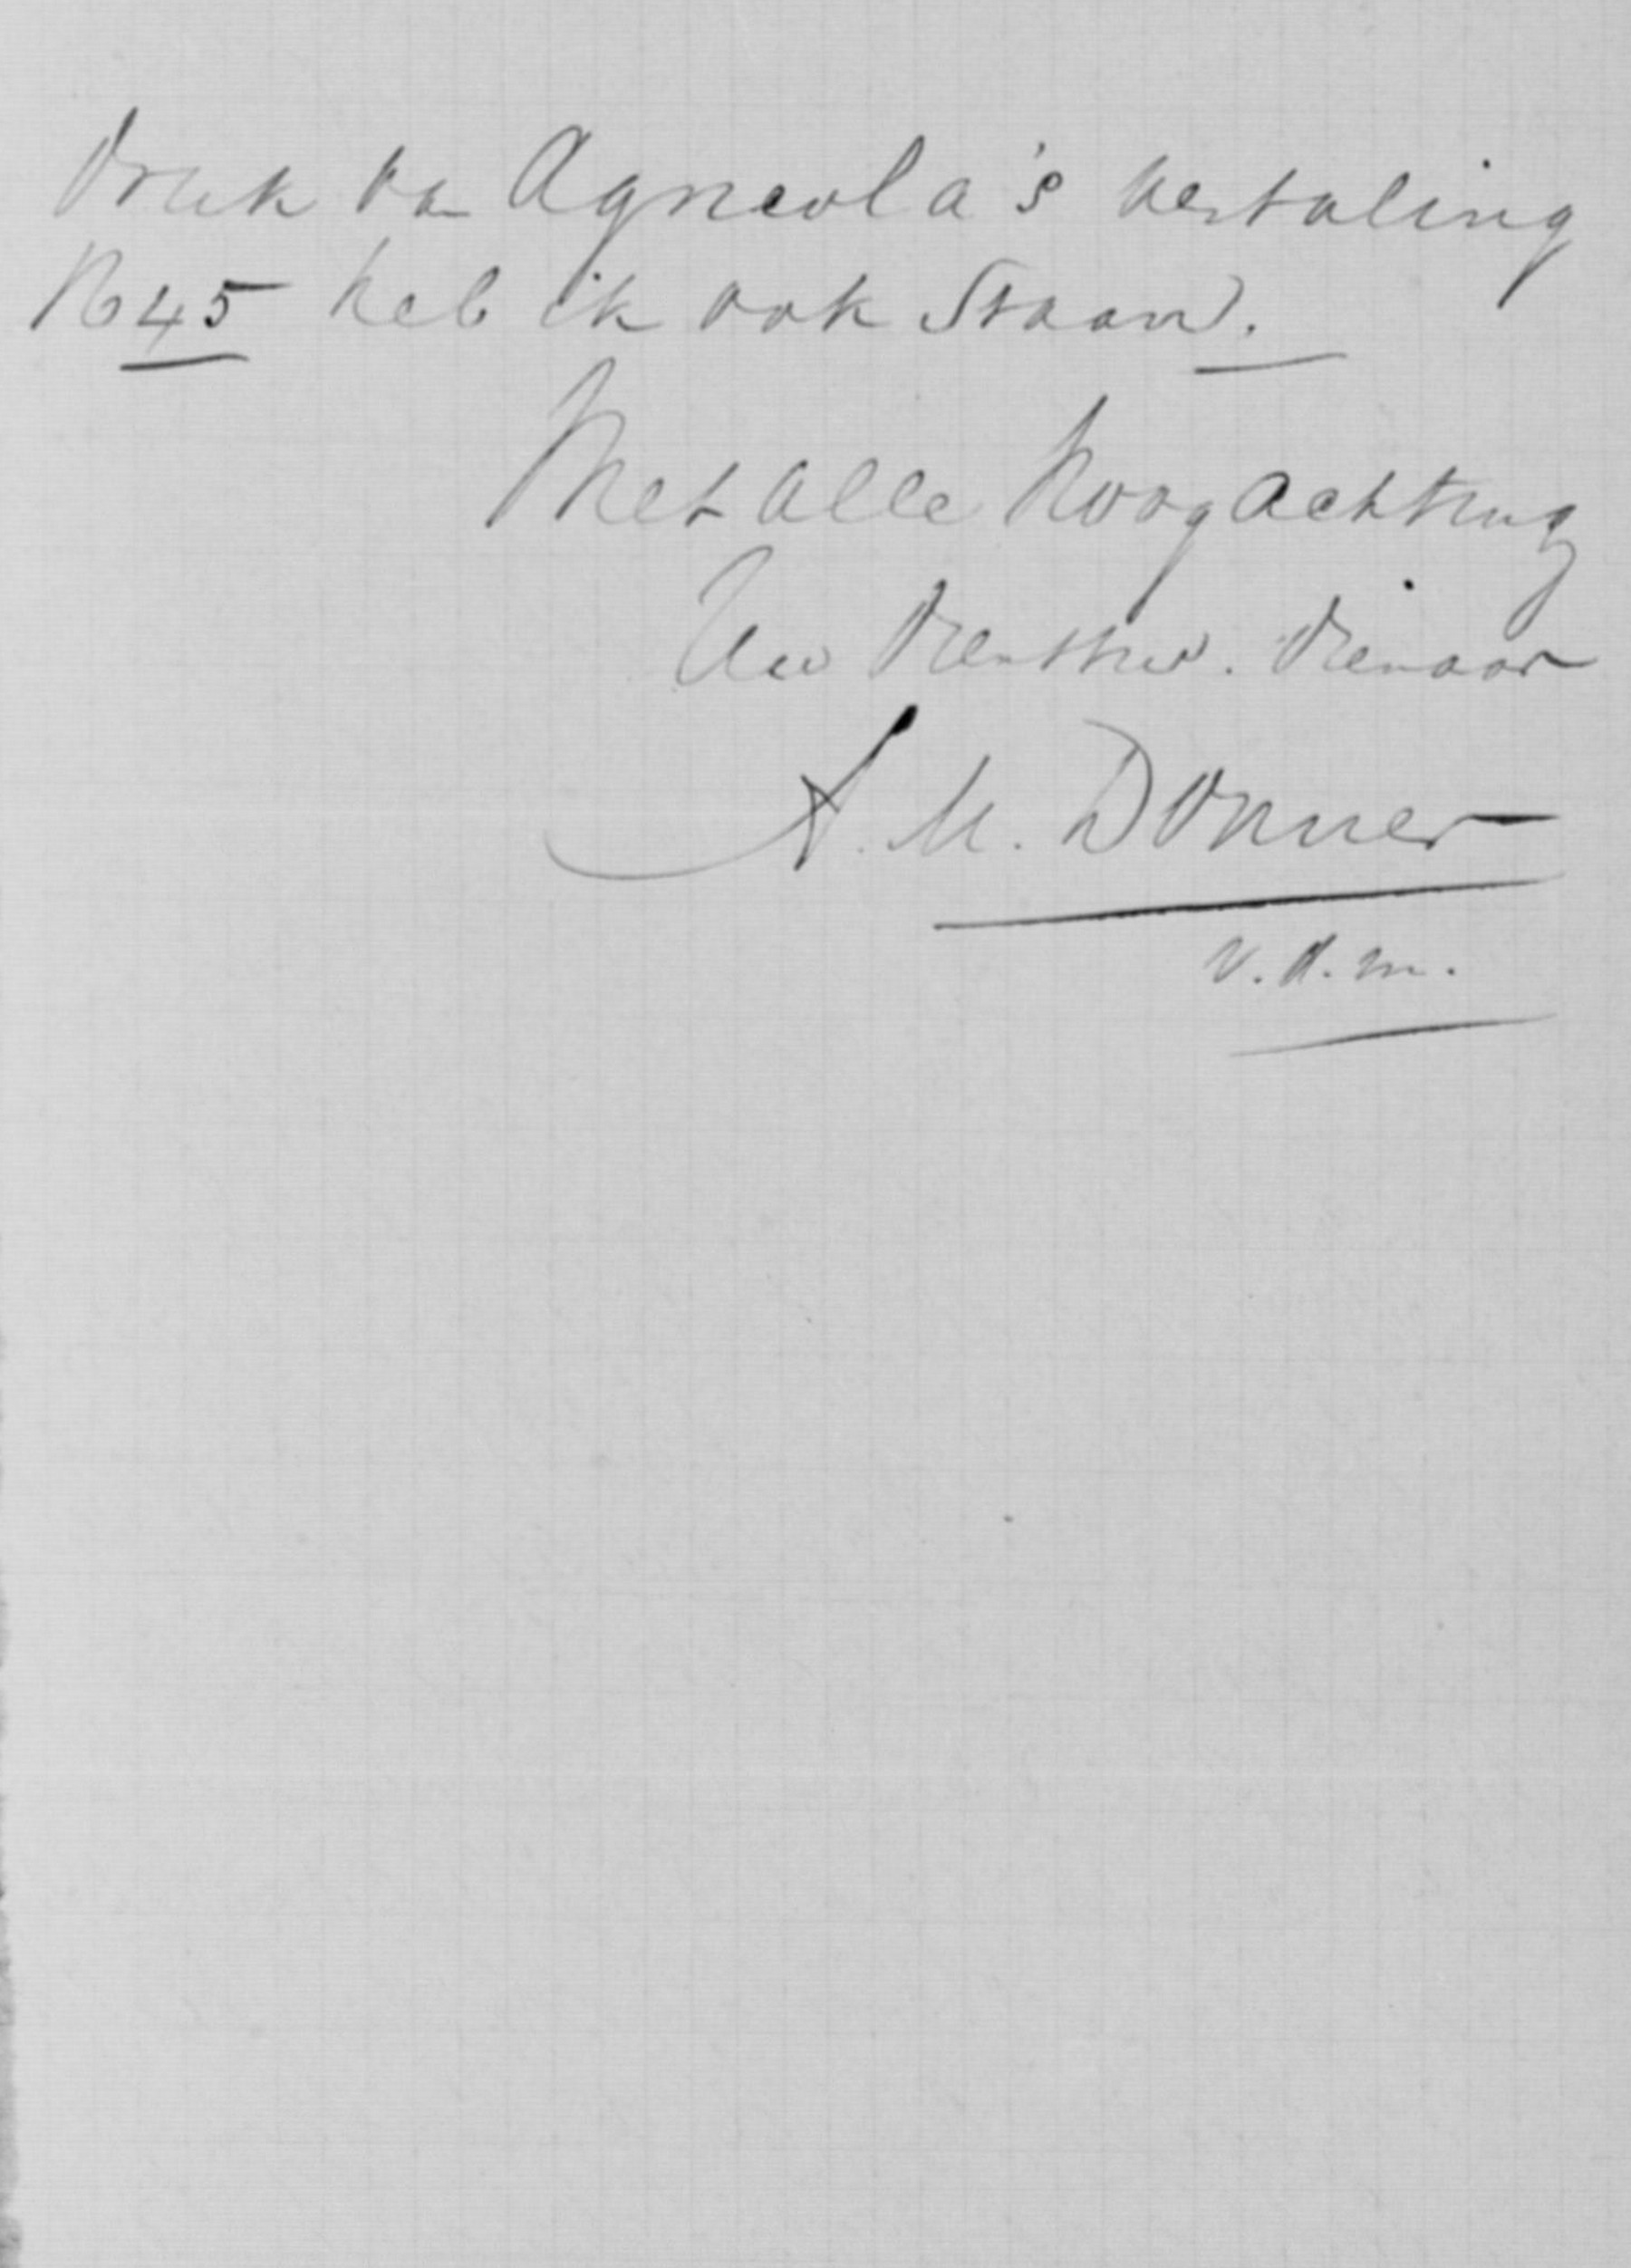 druk van Agricola's vertaling
No 45 heb ik ook staan.
Met alle hoogachting
Uw dienstw. dienaar
A. M. Donner
v. d. m.